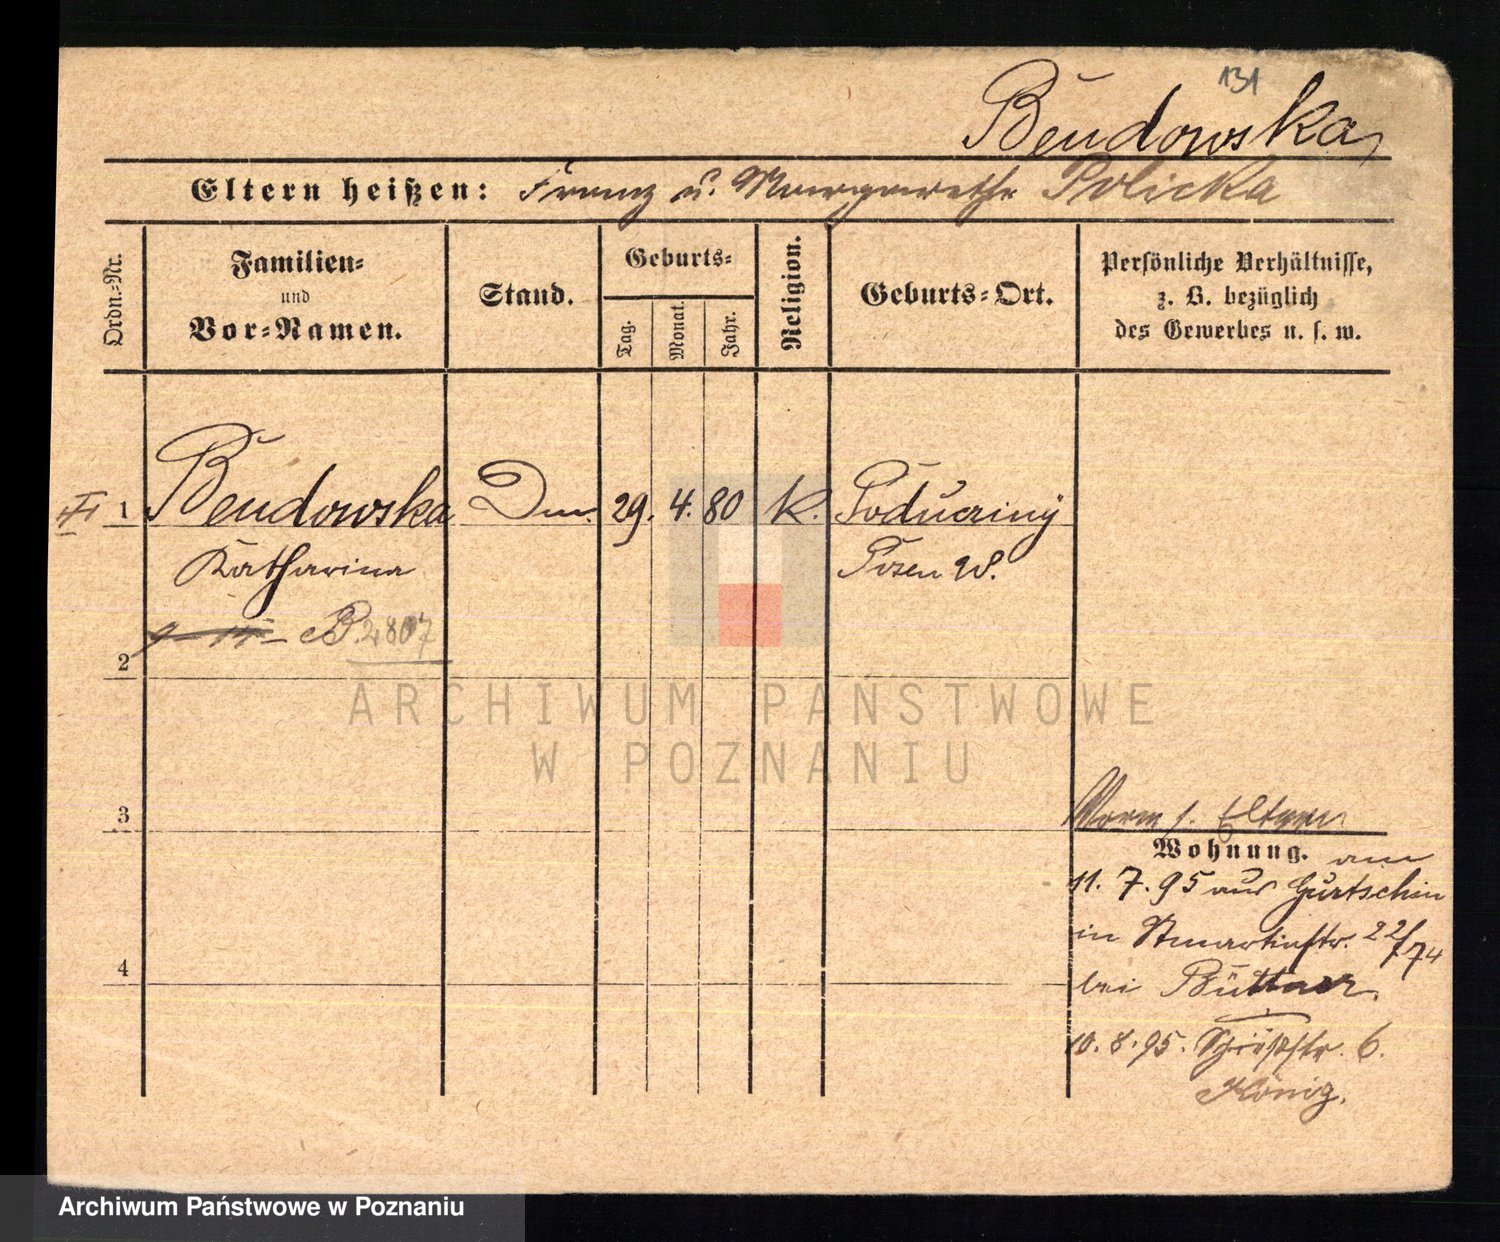 131
Bendowska
Eltern heißen: Franz u. Margarethe Policka
Ordn.-Nr.
Familien-
und
Vor-Namen.
Stand.
Geburts-
Tag.
Monat.
Jahr.
Religion.
Geburts-Ort.
Persönliche Verhältnisse,
z. B. bezüglich
des Gewerbes u. s. w.
1 Bendowska 29. 4. 80 K.
Katharina Posen W.
B. 2807
2
3
s. Eltern
Wohnung.
11. 7. 95 aus Gurtschin
in Stmartinstr. 22/74
bei Büttner.
4
10. 8. 95. Schießstr. 6.
König.
ARCHIWUM PAŃSTWOWE
W POZNANIU
Archiwum Państwowe w Poznaniu